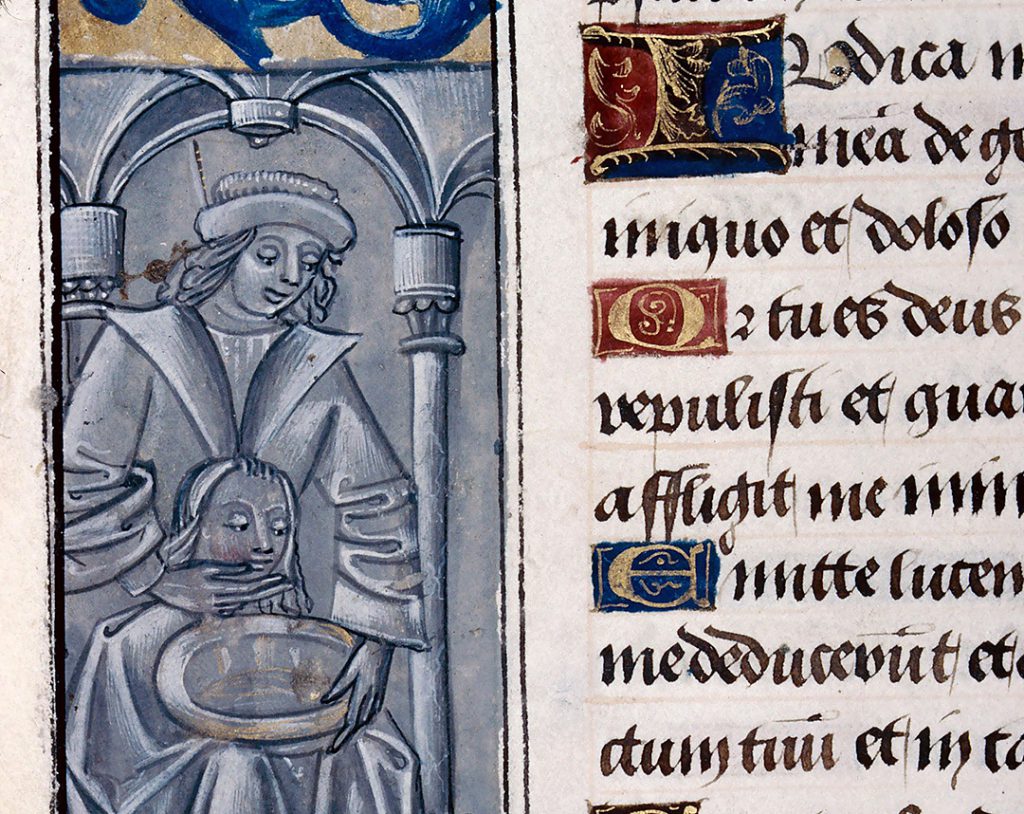 IUdica m
meā de ge
iniquo et doloso
Qꝛ tu es deus
repulisti et qua
affligit me inim
Emitte lucem
me deducerūt et
ctum tuū et in ta